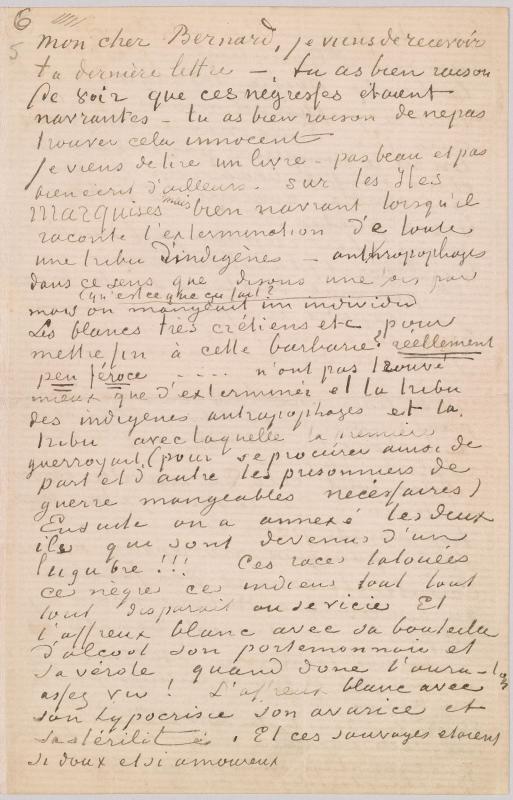 6
5
mon cher Bernard, je viens de recevoir
ta dernière lettre –. tu as bien raison
de voir que ces négresses étaient
navrantes – tu as bien raison de ne pas
trouver cela innocent
je viens de lire un livre – pas beau et pas
bien écrit d'ailleurs – sur les Iles
Marquises mais bien navrant lorsqu'il
raconte l'extermination de toute
une tribu d'indigènes – anthropophages
dans ce sens que disons une fois par
(qu'est ce que ça fait?
mois on mangeait un individu
Les blancs très crétiens etc pour
mettre fin à cette barbarie? réellement
peu féroce ..... n'ont pas trouvé
mieux que d'exterminer et la tribu
des indigenes antropophages et la
tribu avec laquelle la première
guerroyait, (pour se procurer ainsi de
part et d'autre les prisonniers de
guerre mangeables nécessaires)
Ensuite on a annexé les deux
iles qui sont devenus d'un
lugubre !!! Ces races tatouées
ces nègres ces indiens tout tout
tout disparait ou se vicie Et
l'affreux blanc avec sa bouteille
d'alcool son portemonnaie et
sa vérole quand donc l'aura-t-on
assez vu ! L'affreux blanc avec
son hypocrisie son avarice et
sa stérilité. Et ces sauvages etaient
si doux et si amoureux